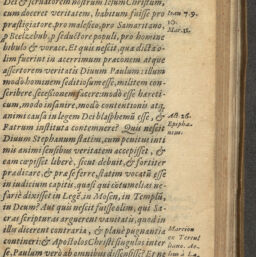 Dei & seruatorem nostrum Iesum Christum,
cum doceret veritatem, habitum fuisse pro
prestigiatore, pro malefico, pro Samaritano,
p Beelzebub, p seductore populi, pro homine
bibulo & vorace. Et quis nescit, qua dicta o-
lim fuerint in acerrimum præconem atque
assertorem veritatis Diuum Paulum: illum
modò hominem seditiosum esse, militem con-
scribere, secessionem facere: modò esse hæreti-
cum, modò insanire, modò contentionis atq;
animi causa in legem Dei blasphemū esse, &
Patrum instituta contemnere? Quis nescit
Diuum Stephanum statim, cum penitùs inti-
mis animi sensibus veritatem accepisset, &
eam cœpisset liberè, sicut debuit, & fortiter
prædicare, & præ se ferre, statim vocatū esse
in iudicium capitis, quasi qui
dixisset in Legē, in Mosen, in Templū,
in Deum? Aut quis nescit fuisse olim, qui Sa-
cras scripturas arguerent vanitatis, quod in
illis dicerent contraria, & planè pugnantia
contineri: & Apostolos Christi singulos inter
se, Paulum verò ab omnibus dissensisse? Et ne
Ioan 7.9.
10.
Mar. 11.
Act. 26.
Epipha-
nius.
Marcion
ex Tertul
liano. Ae-